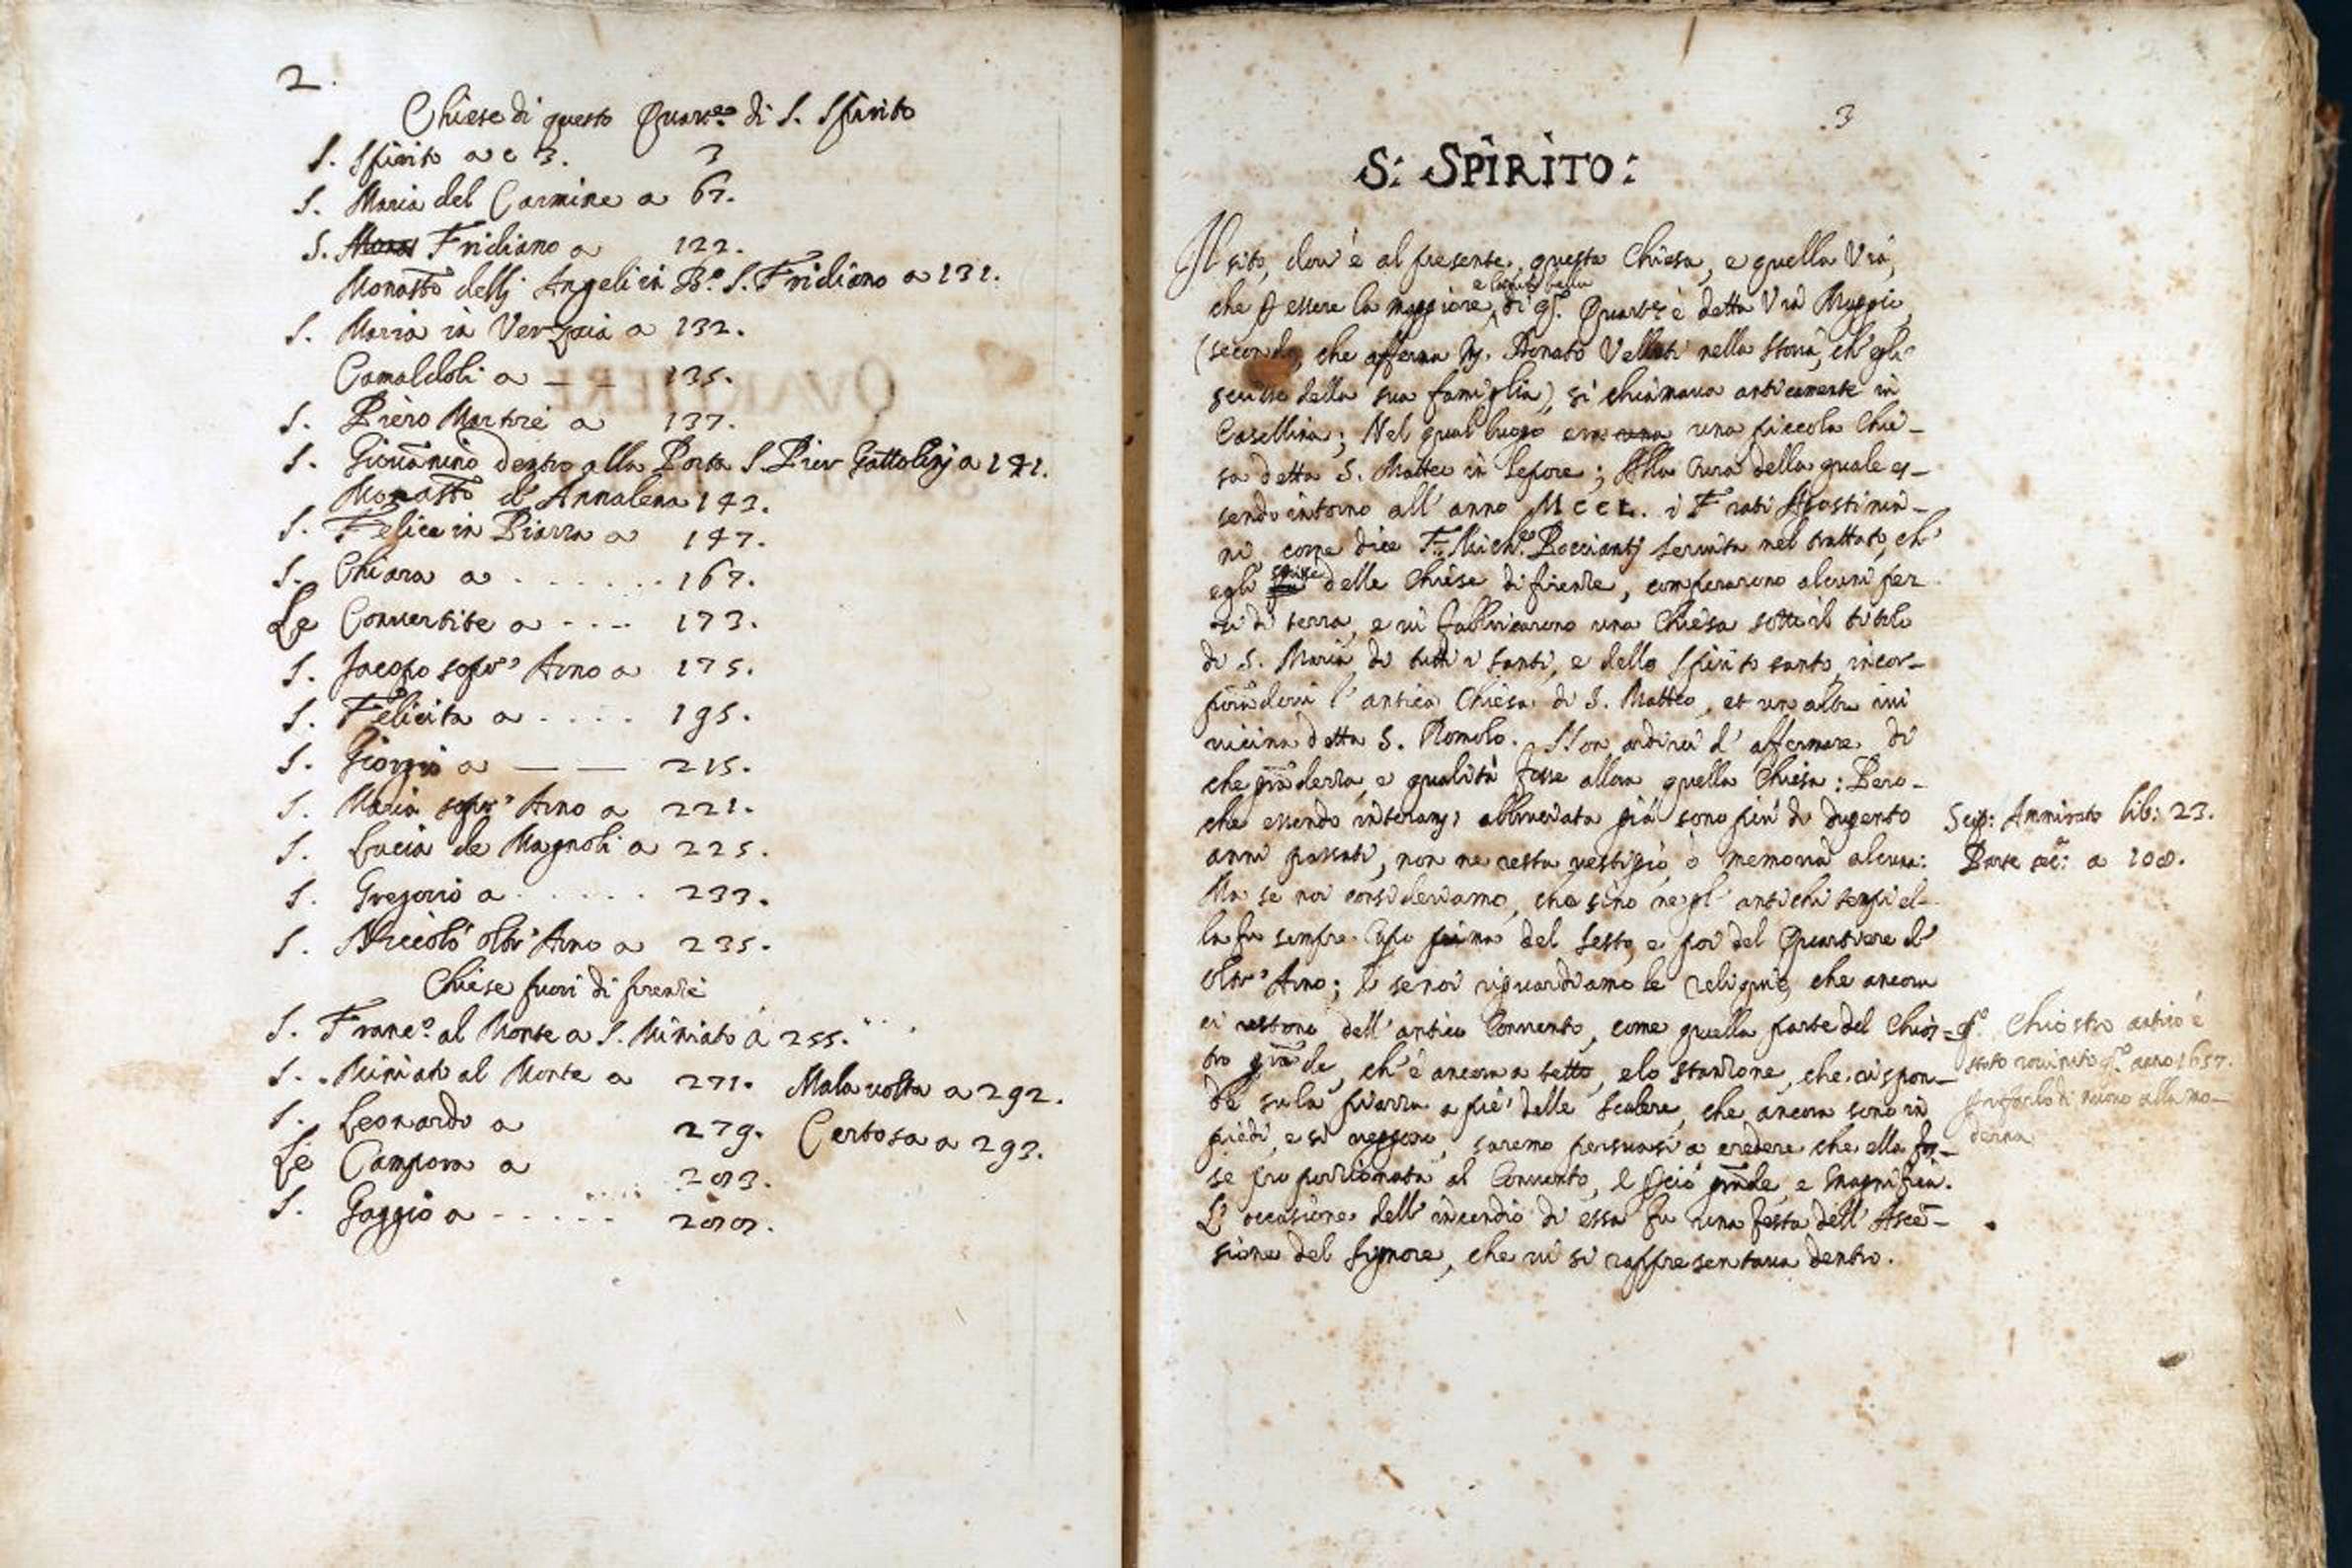 2.
Chiese di questo Quar.re di S. Spirito
S. Spirito a c 3. 3
S. Maria del Carmine a 67.
S. Fridiano a 122.
Monastº dellj Angeli in Bº. S. Fridiano a 131.
S. Maria in Verzaia a 132.
Camaldoli a — — 135.
S. Piero Martire a 137.
S. Giovãnino dentro alla Porta S. Pier Gattolinj a 141.
Monastº d'Annalena 143.
S. Felice in Piazza a 147.
S. Chiara a . . . . . . . 167.
Le Convertite a - - - - 173.
S. Jacopo sopr' Arno a 175.
S. Felicita a . . . . 195.
S. Giorgio a — — 215.
S. Maria sopr' Arno a 221.
S. Lucia de Magnoli a 225.
S. Gregorio a . . . . . . 233.
S. Niccolò oltr' Arno a 235.
Chiese fuori di firenze
S. Franc.º al Monte a S. Miniato a 255.
S. Miniato al Monte a 271. Malavolta a 292.
S. Leonardo a 279. Certosa a 293.
Le Campora a 283.
S. Gaggio a - - . . . - - 288.
3
S: SPIRITO:
Il sito, dov'è al presente questa Chiesa, e quella Via,
e la più bella
che p essere la maggiore, di qº. Quartre è detta Via Maggio,
(secondo, che afferma M. Donato Velluti nella storia, ch'egli
scrisse della sua famiglia), si chiamava anticamente in
Casellina; Nel qual luogo era una piccola Chie-
sa detta S. Matteo in lepore; Alla Cura della quale es-
sendo intorno all'anno MCCL. i Frati Agostinia-
ni, come dice F. Mich.e Pocciantj servita nel trattato, ch'
egli scrisse delle Chiese di firenze, comperarono alcuni pez
zi di terra, e vi fabbricarono una Chiesa sotto il titolo
di S. Maria, di tutti i santi, e dello Spirito santo, incor-
porãdovi l'antica Chiesa di S. Matteo, et un altra ivi
vicina detta S. Romolo. Non ardirei d'affermare, di
che grãdezza, e qualità fosse allora quella Chiesa: Pero-
che essendo interamte abbruciata già sono piu di dugento
anni passati, non ne resta vestigio, ò memoria alcuna:
Ma se noi consideriamo, che sino negl'antichi tempi el-
la fu sempre Capo prima del Sesto, e poi del Quartiere d'
oltr' Arno; e se noi riguardiamo le reliquie, che ancora
ci restono dell'antico Convento, come quella parte del Chios-
tro grãde, ch'è ancora a tetto, e lo stanzone, che rispon-
de su la piazza a piè delle scalere, che ancora sono in
piedi, e si veggono, saremo persuasi a credere che ella fos-
se proporzionata al Convento, e perciò grãde, e magnifica.
L'occasione dell'incendio di essa fu una festa dell'Ascẽ-
sione del Signore, che vi si rappresentava dentro.
Scip: Ammirato lib: 23.
Parte sec: a 108.
qº. Chiostro antico è
stato rovinato qº. anno 1657.
p rifarlo di nuovo alla mo-
derna